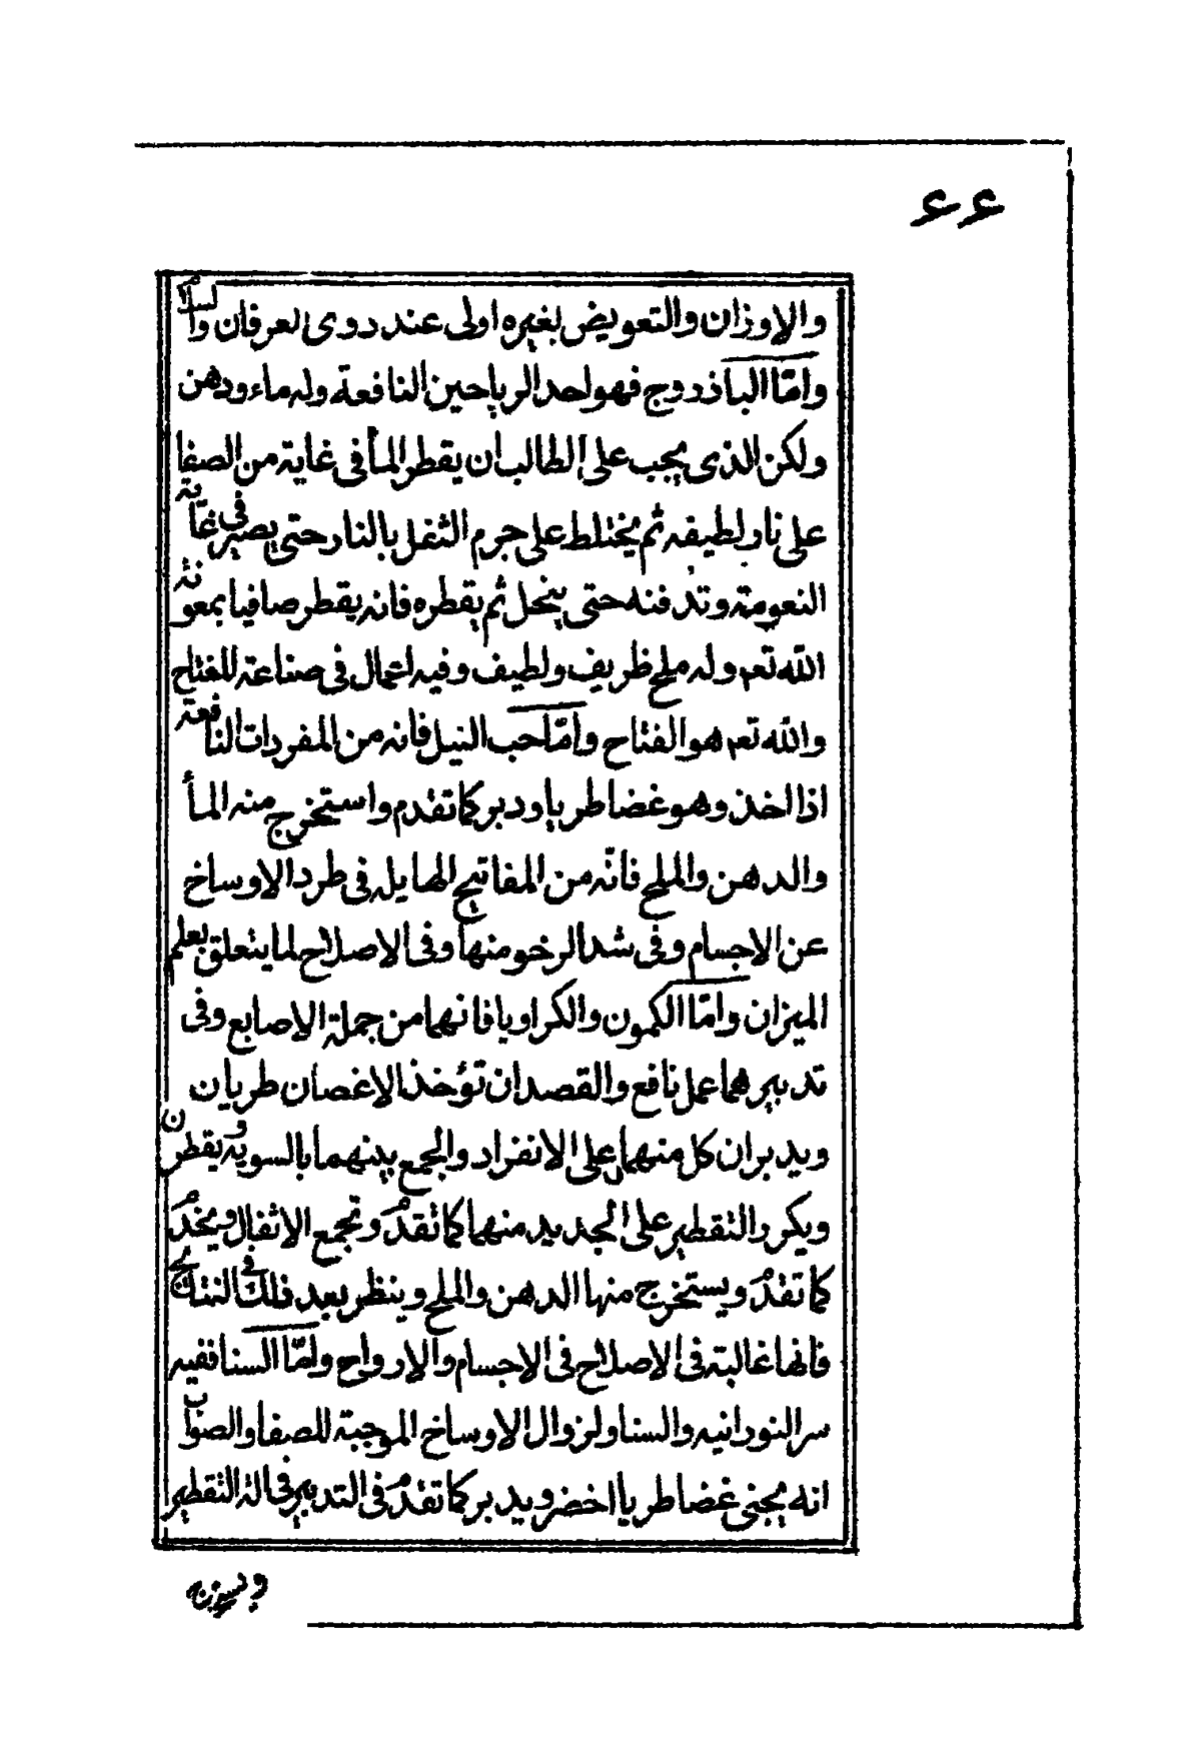 ۶۶
والاوزان والتعويض بغيره اولى عند ذوى لعرفان والسلام
وامّا الباذروج فهو احد الرياحين النافعة وله ماء ودهن
ولكن الذى يجب على الطالب ان يقطر المأ فى غاية من الصفا
على نار لطيفه ثم يختلط على جرم الثفل بالنار حتى يصير فى غاية
النعومة وتدفنه حتى ينحل ثم يقطره فانه يقطر صافيا بمعونة
الله تعم وله ملح ظريف ولطيف وفيه اعمال فى صناعة للفتاح
والله تعم هو الفتاح وامّا حب النيل فانه من المفردات النافعة
اذا اخذ وهو غضا طريا ودبر كما تقدم واستخرج منه المأ
والدهن والملح فانّه من المفاتيح الهايله فى طرد الاوساخ
عن الاجسام وفى شد الرخو منها وفى الاصلاح لما يتعلق بعلم
الميزان وامّا الكمون والكراويا فانهما من جملة الاصابع وفى
تدبيرهما عمل نافع والقصد ان تؤخذ الاغصان طريان
ويدبران كل منهما على الانفراد والجمع بينهما بالسوية ويقطرن
ويكرر التقطير على الجديد منهما كما تقدم وتجمع الاثفال ويخدم
كما تقدم ويستخرج منها الدهن والملح وينظر بعد ذلك فى النتائج
فانها غالبة فى الاصلاح فى الاجسام والارواح وامّا السنا ففيه
سر النورانيه والسنا ولزوال الاوساخ الموجبة للصفا والصواب
انه يجنى غضا طريا اخضر ويدبر كما تقدم فى التدبير فى الة التقطير